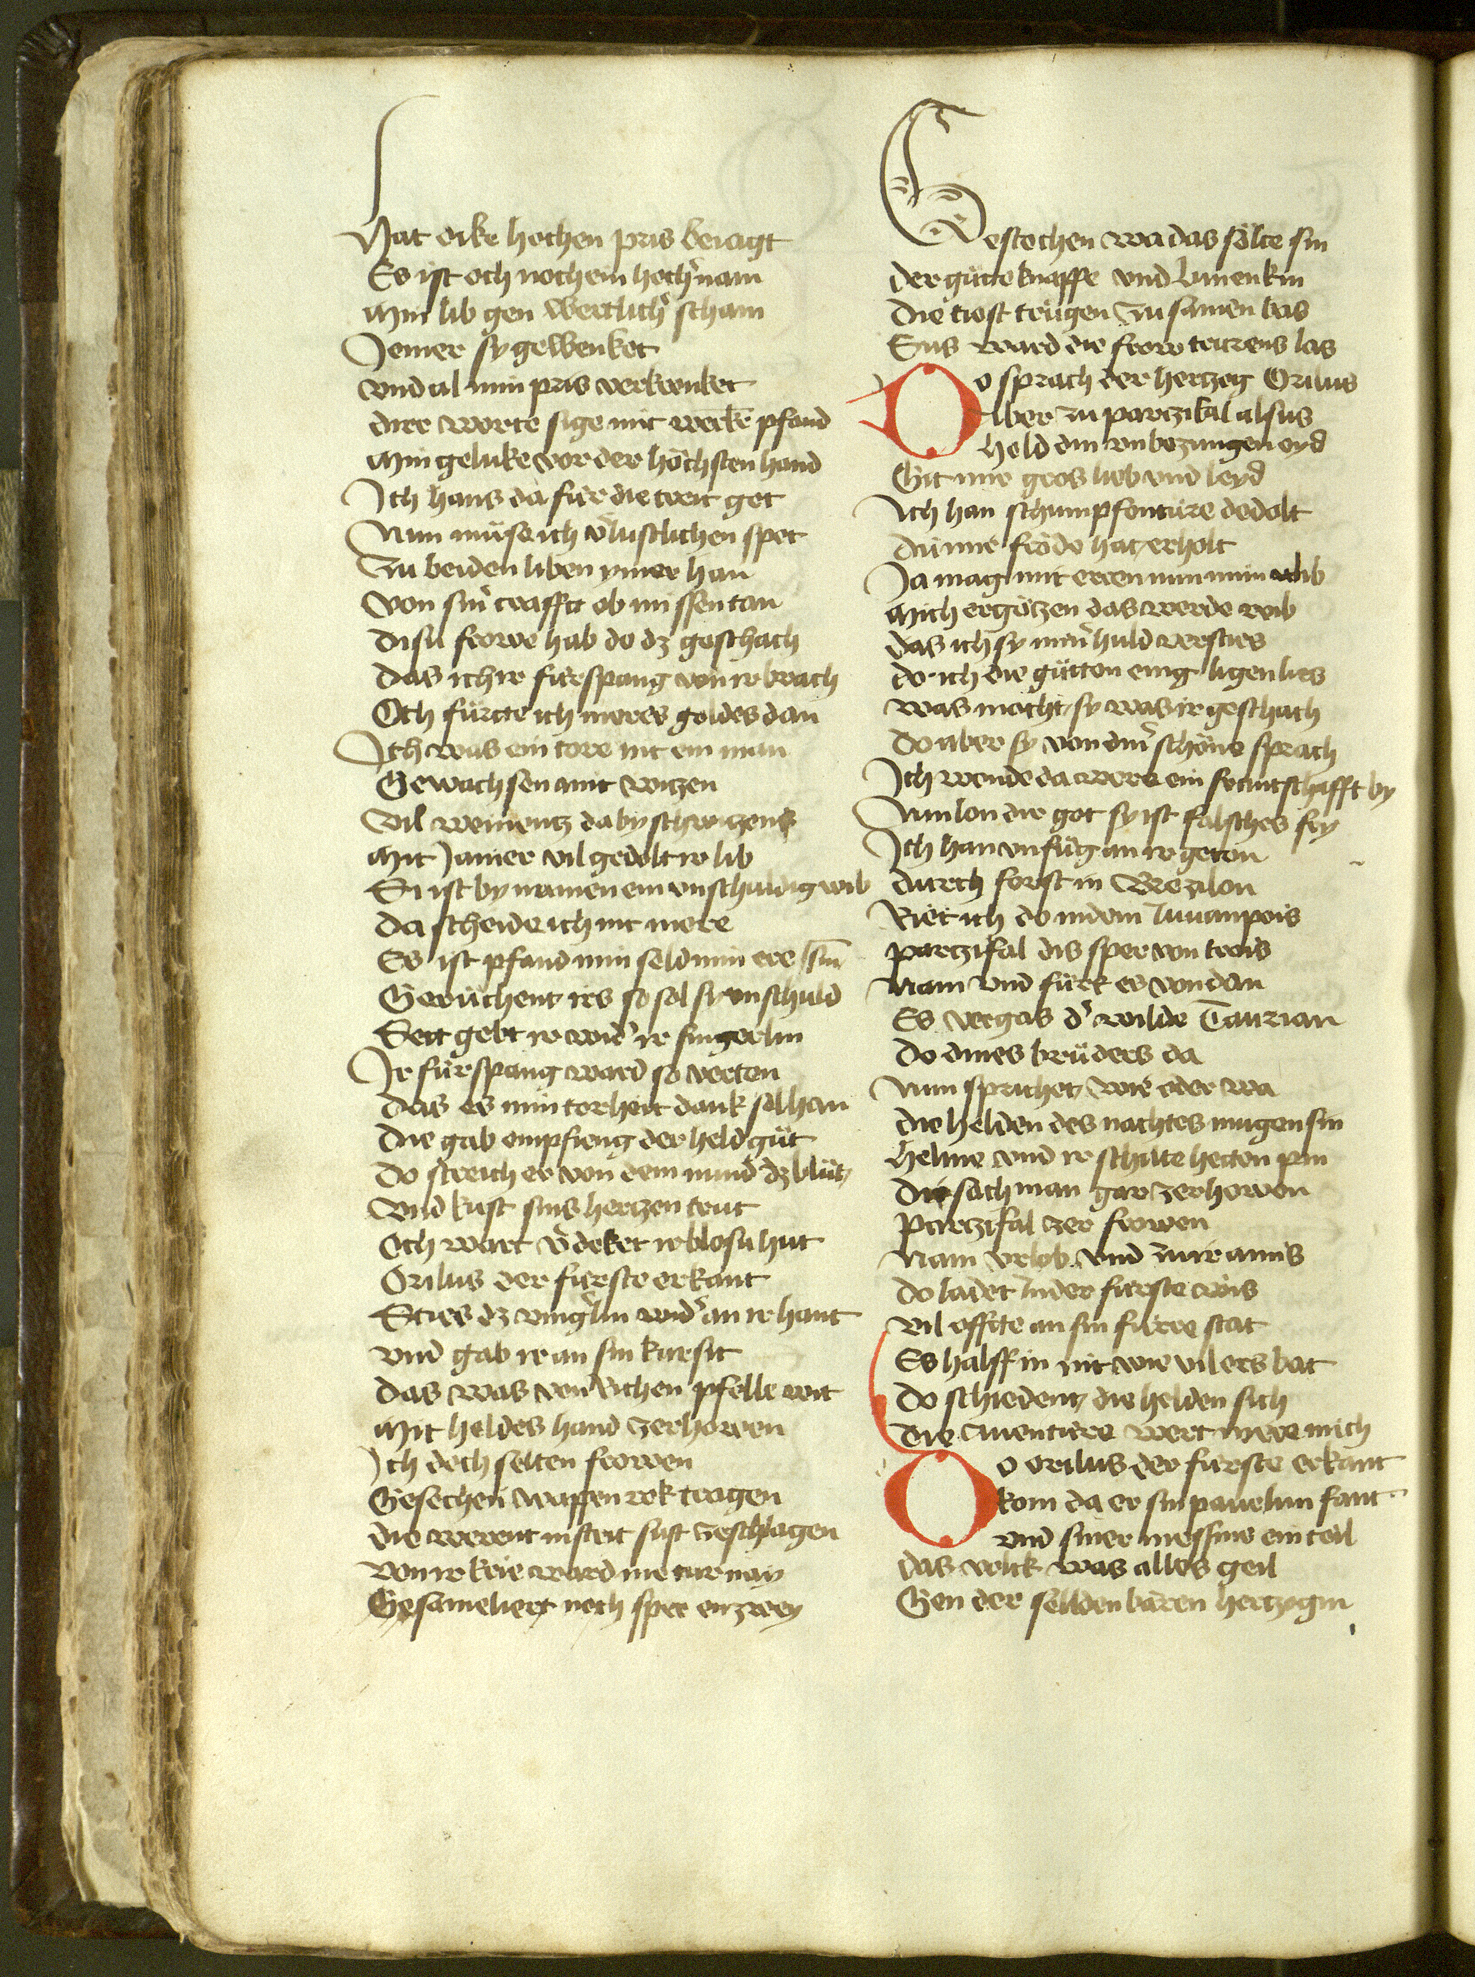 Hat oike hochen pris beiagt
Es ist och noch ein hochr nam
Min lib gen werltlichr scham
Jemer sy gelwenket
vnd al min pris verkrenket
dirr worte sige mit werke pfand
Min geluke vor der höchsten hand
Jch hans da fúr die treit got
Nun müse ich vlustlichen spot
Zu beiden liben ymer han
Von sinr craffte ob missentan
disú frowe hab do dz geschach
das ich ir fúrspang von ir brach
Och fürtte ich meres goldes dan
Jch was ein tore nit ein man
Gewachsen mit witzen
Vil weinentz da by schwitzens
Mit Jamer vil gedolt ir lib
Si ist by namen ein vnschuldig wib
da scheide ich nit mere
Es ist pfand min seld min ere sin
Gerüchent irs so sol sy vnschuld
Sett gebt ir widr ir fingerlin
Jr fúrspang ward so verton
das es min torheit dank sol han
die gab empfieng der held güt
do streich er von dem mund dz blüt
vnd kust sins hertzen trut
Och wart vdeket ir blosú hut
Orilus der fúrste erkant
Sties dz vingrlin widr an ir hant
vnd gab ir an sin kursit
das was von richen pfelle wit
Mit heldes hand zerhowen
Jch doch selten frowen
Gesechen wappen rok tragen
die werent in strit sust zeschlagen
von ir krie ward nie turnay
Gesameliert noch sper enzwey
Gestochen wa das sölte sin
der gütte knappe vnd Linenkin
die tiost trügen zu samen bas
Sus ward die frow trurens las
Do sprach der hertzog Orilus
Aber zu partzifal alsus
Held din vnbezwngen eyd
Git mir gros lieb vnd leyd
Jch han schumpfentúre dedolt
dú mir fröde hat erholt
Ja mag mit eren nun min lib
Mich ergötzen das werde wib
das ich sy minr huld versties
do ich die gútten einig ligen lies
was mocht sy was ir geschach
do aber sy von dinr schöne sprach
Jch wende da were ein fruntschafft by
Nun lon dir got sy ist falsches fry
Jch han vnfúg an ir geton
durch forst in Brezilon
Riet ich do in dem Liuanpois
partzifal dis sper von trois
Nam vnd fúrt es von dan
Es vergas dr wilde Taurian
do dines brüders da
Nun sprichet wie oder wa
die helden des nachtes mugen sin
Helme vnd ir schilte hetton pin
die sach man gar zerhowen
Partzifal zer frowen
Nam vrlob vnd zu ir amis
do ladet in der fúrste wis
vil offte an sin fúrre stat
Es halff in nit wie vil ers bat
do schiedent die helden sich
die Auentúre wert mere mich
Do orilus der fúrste erkant
kom da er sin pauelun fant
vnd siner messnie ein teil
das volck was alles geil
Gen der seldenbären hertzogin